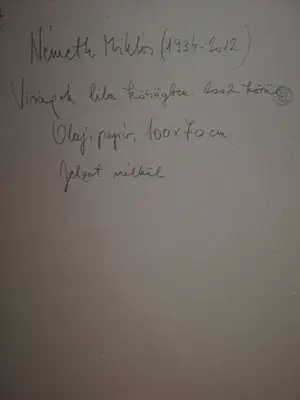 Németh Miklós (1934-2012)
Virágok lila kőrágben, 2002 körül
Olaj, papír, 100x70 cm.
Jelzet nélkül